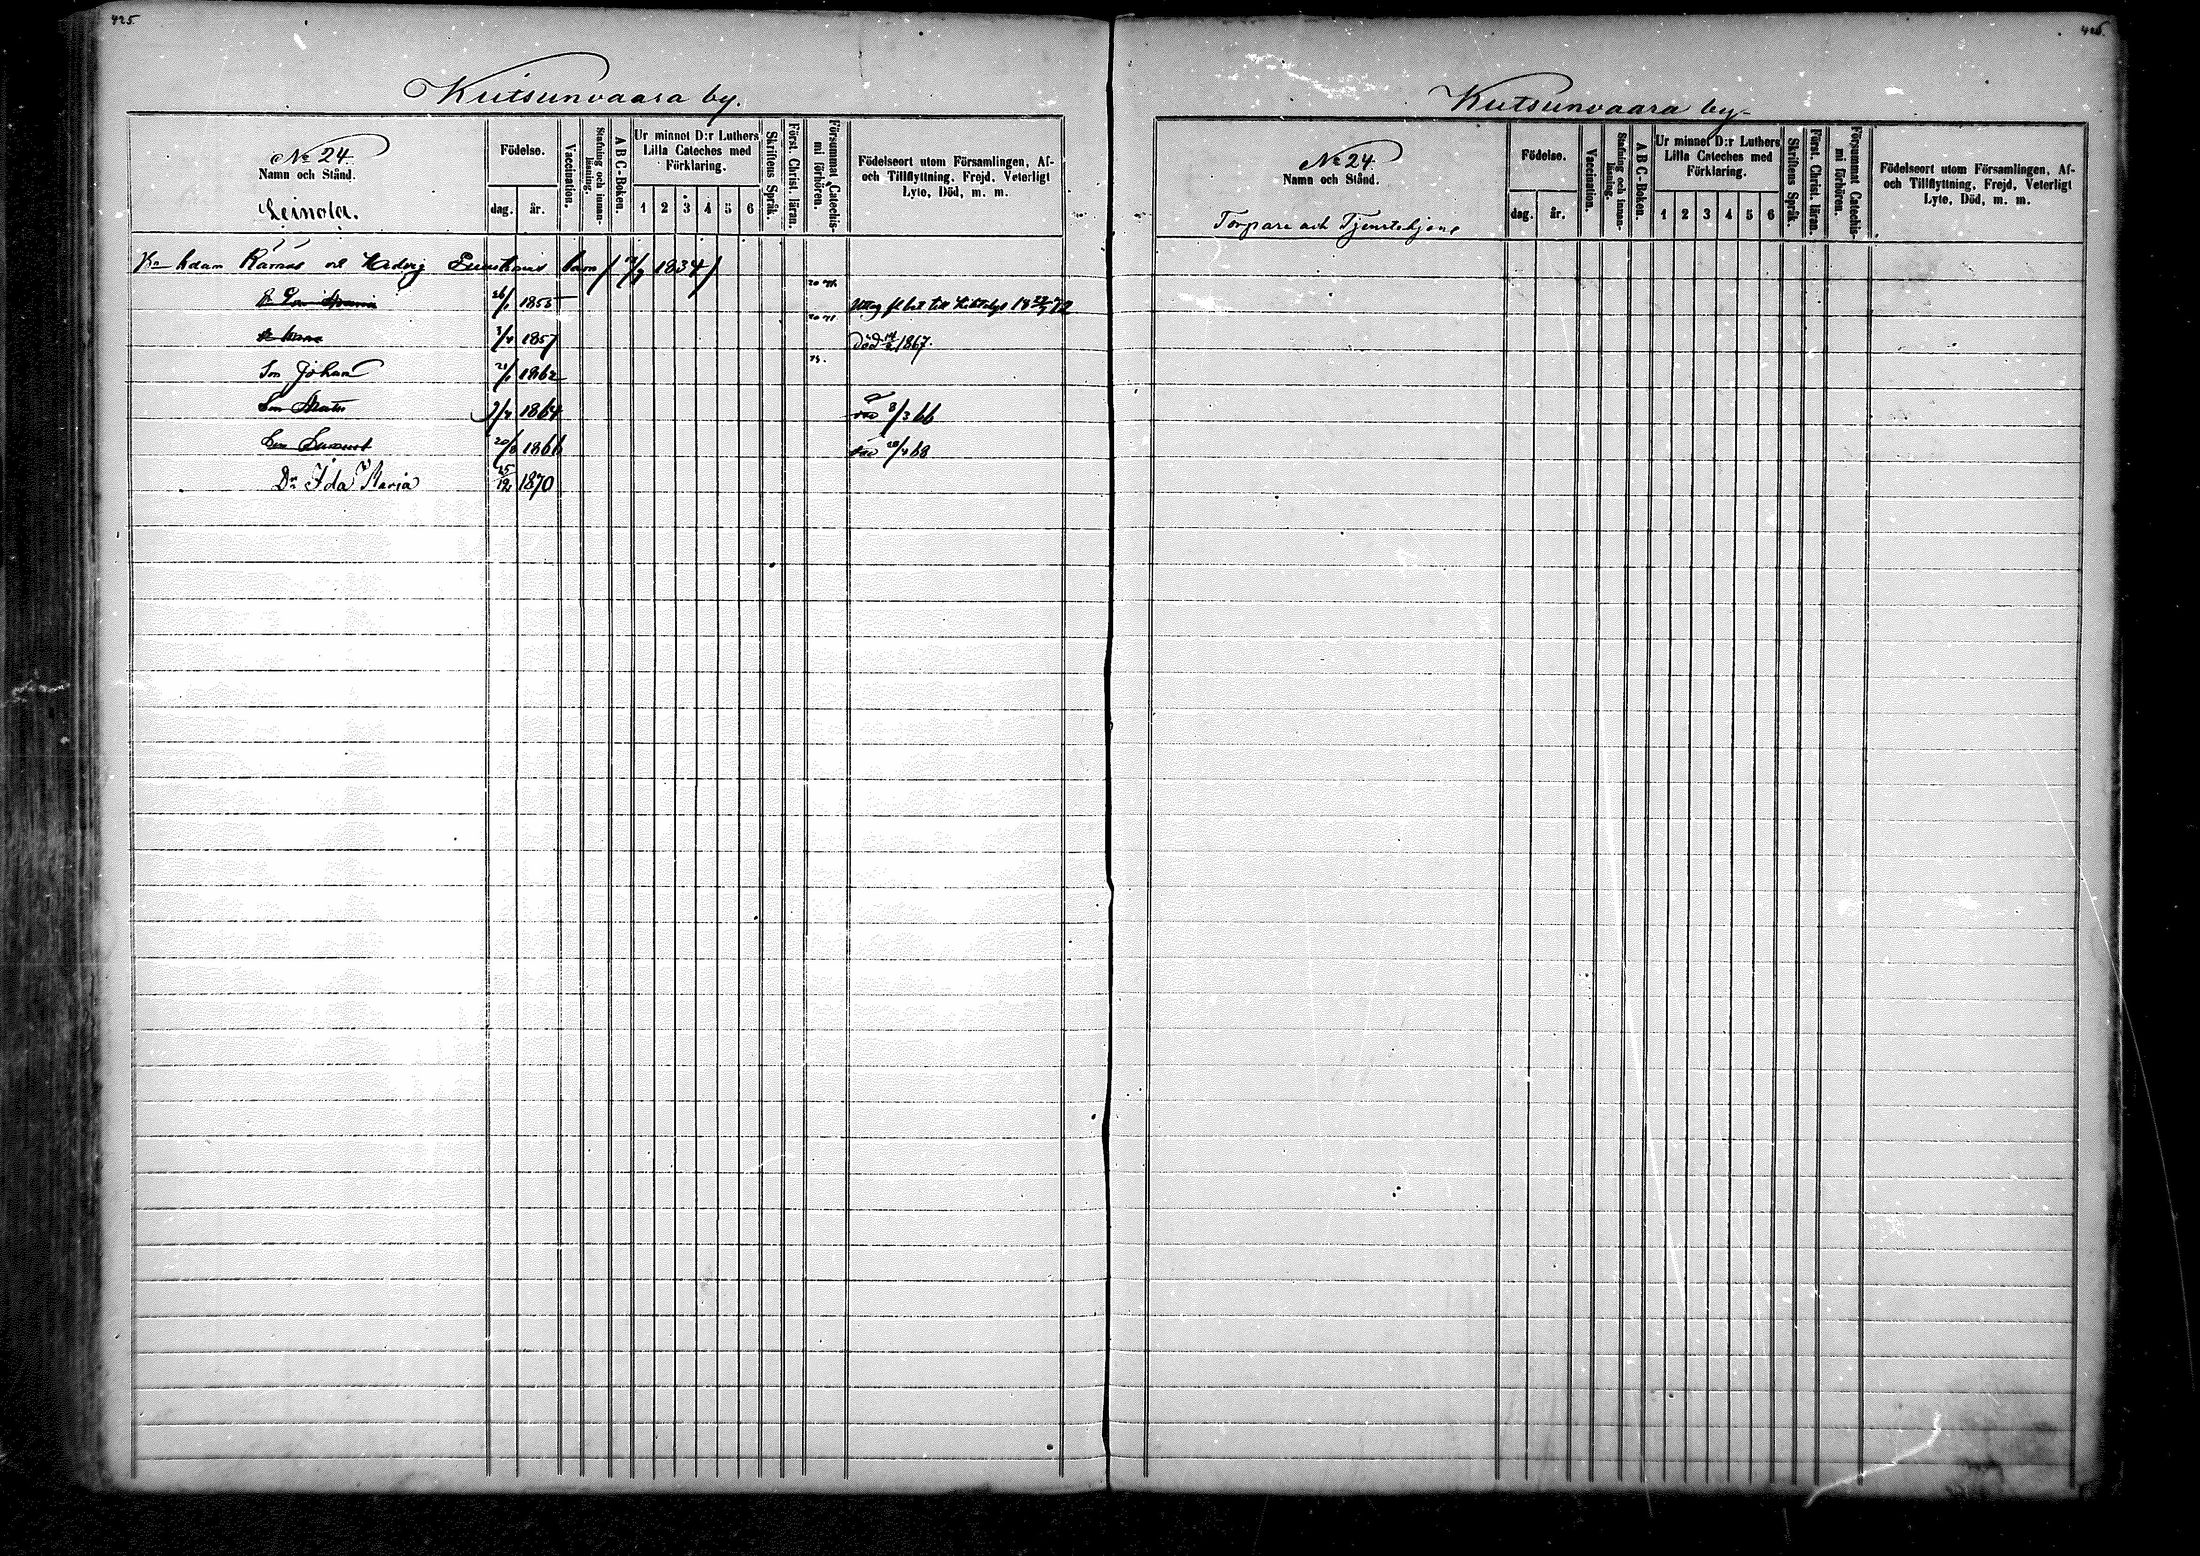 425.
Kutsunvaara by.
No 24.
Namn och Stånd.
Leinola.
Födelse.
dag. år.
Vaccination.
Stafning och innan-
läsning.
A B C-Boken.
Ur minnet D:r Luthers
Lilla Cateches med
Förklaring.
1 2 3 4 5 6
Skriftens Språk.
Först. Christ. läran.
Försummat Catechis-
mi förhören.
Födelseort utom Församlingen, Af-
och Tillflyttning, Frejd, Veterligt
Lyte, Död, m. m.
Adam och Hedvig barn 1834
26/1 1855 till 72
1857 död 1867.
Son Johan 1862
Son 1864 8/3 66
Son 20/ 1866 68
Dr Ida Maria 25/12 1870
426.
Kutsunvaara by.
No 24
Namn och Stånd.
Torpare och Tjenstehjon
Födelse.
dag. år.
Vaccination.
Stafning och innan-
läsning.
A B C-Boken.
Ur minnet D:r Luthers
Lilla Cateches med
Förklaring.
1 2 3 4 5 6
Skriftens Språk.
Först. Christ. läran.
Försummat Catechis-
mi förhören.
Födelseort utom Församlingen, Af-
och Tillflyttning, Frejd, Veterligt
Lyte, Död, m. m.